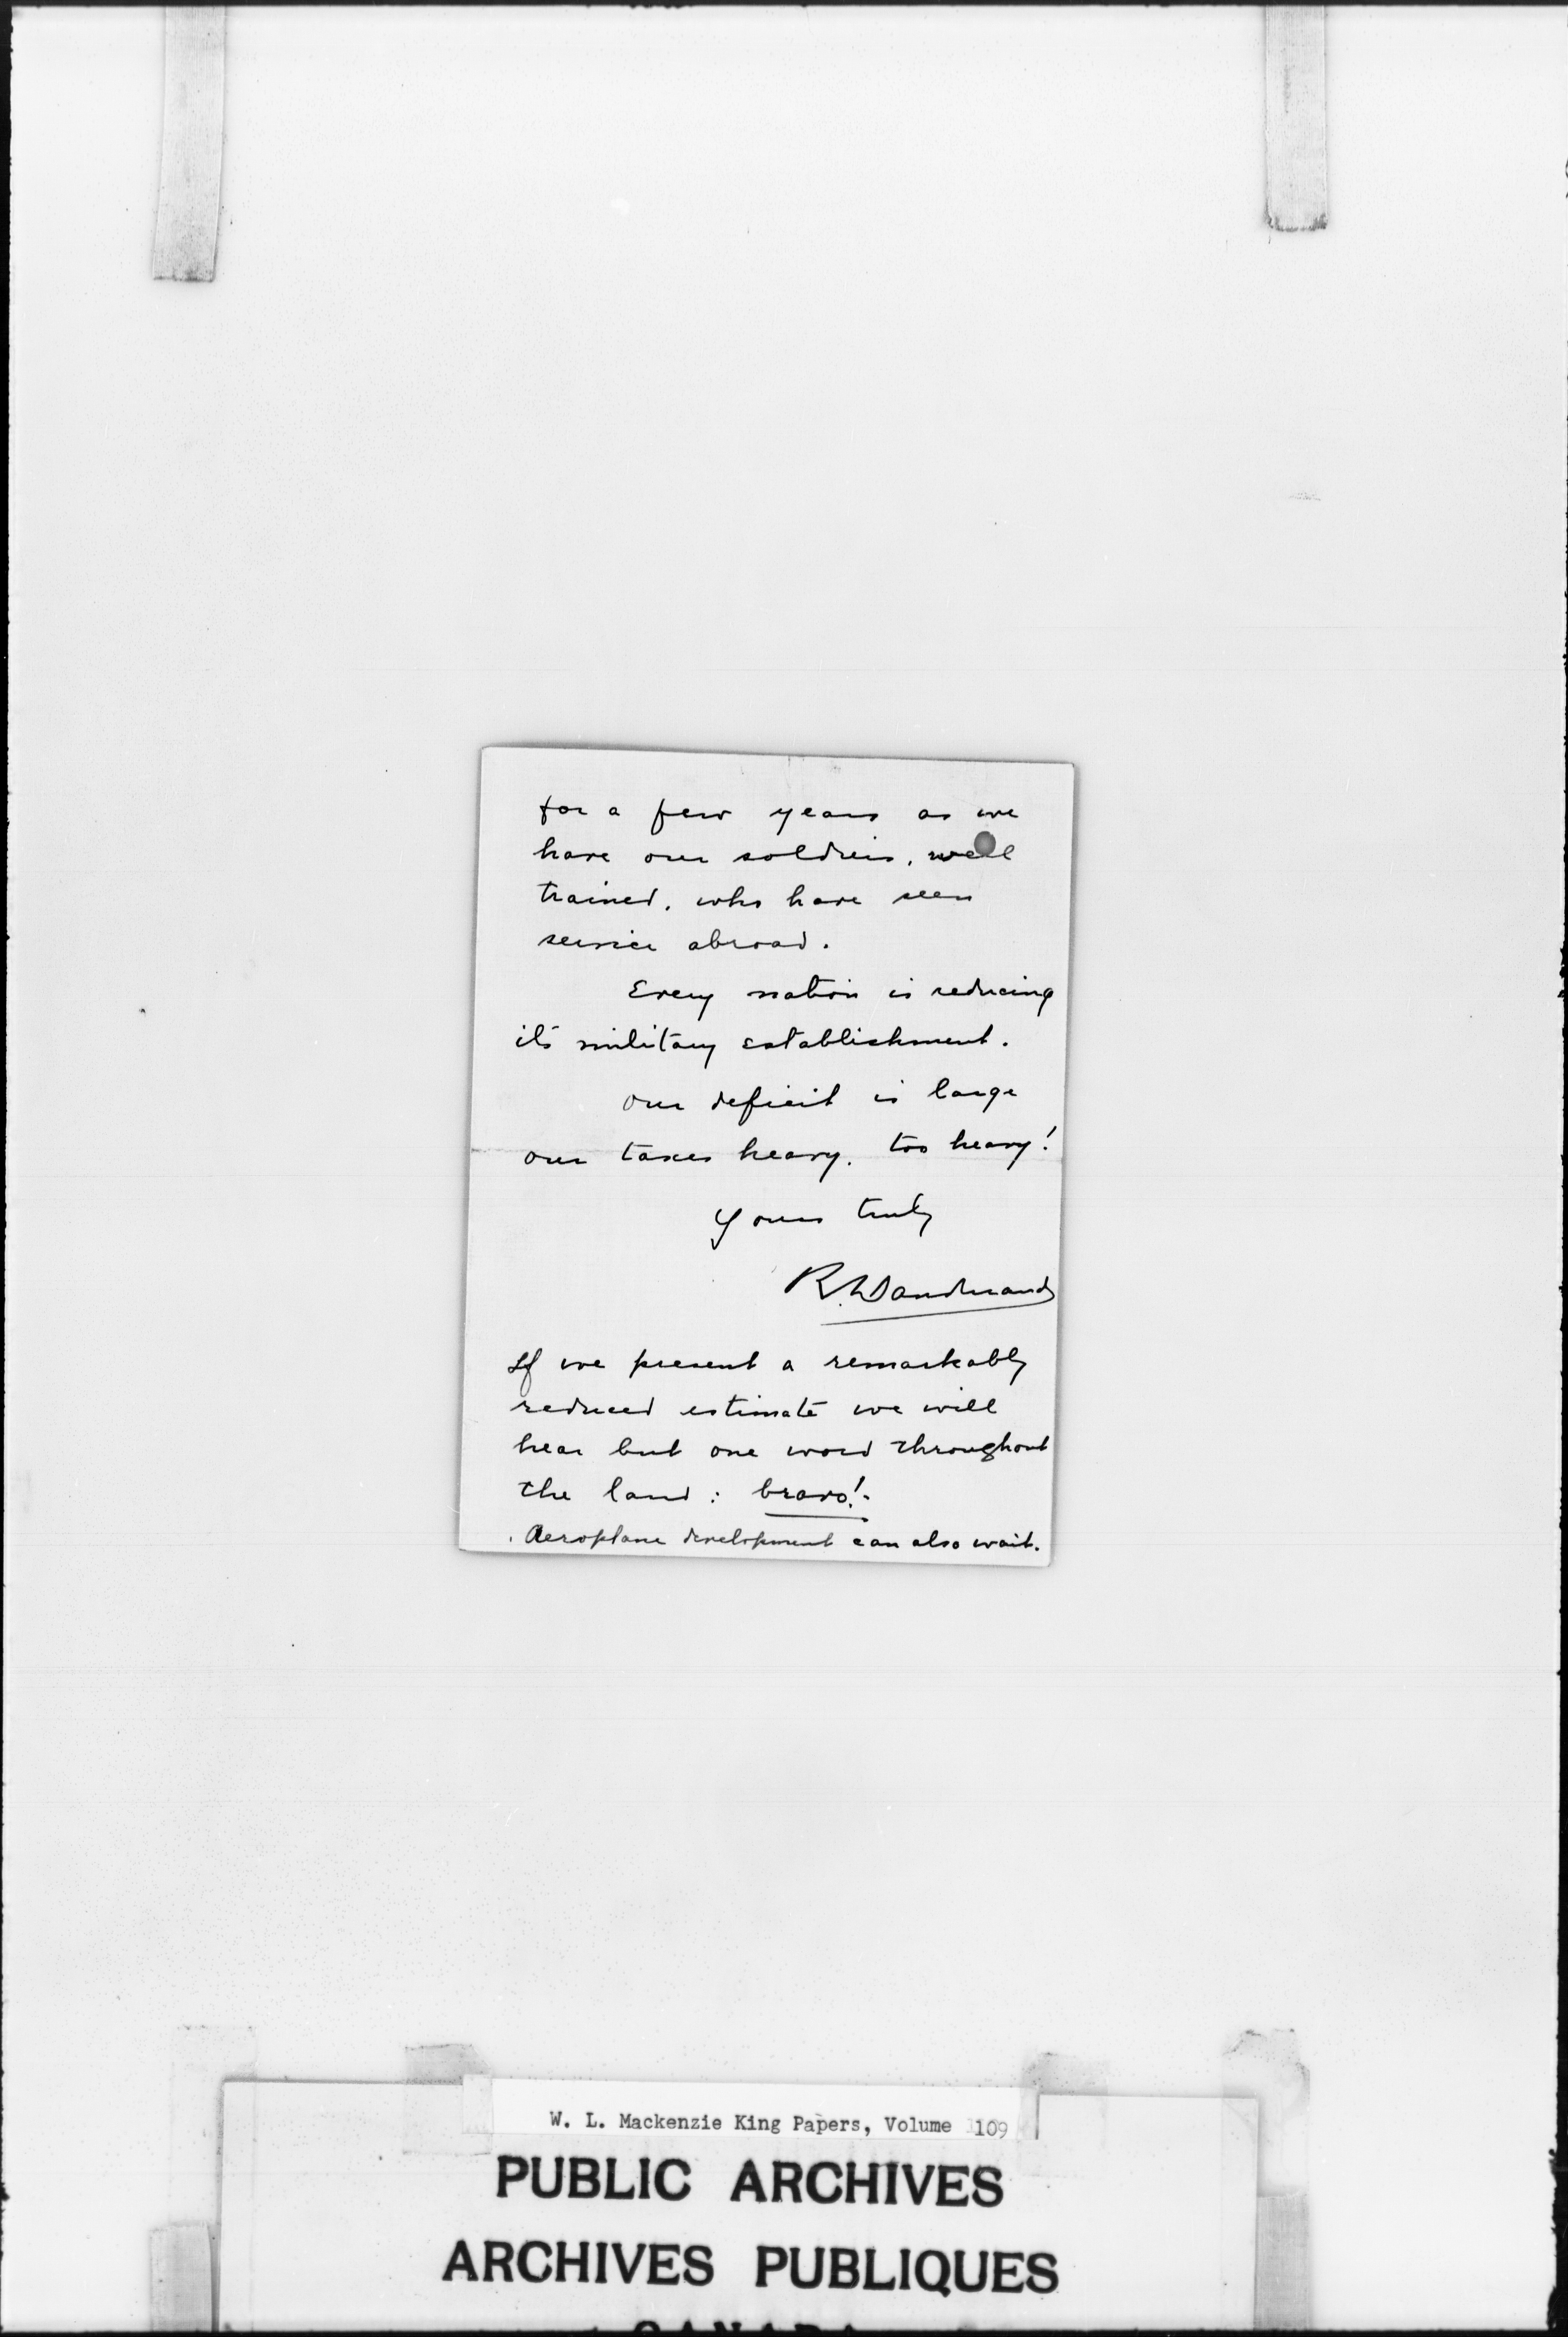 for a few years as we
have our soldiers, well
trained, who have seen
service abroad.
Every nation is reducing
its military establishment.
Our deficit is large
our taxes heavy, too heavy!
Yours truly
R. Dandurand
If we present a remarkably
reduced estimate we will
hear but one word throughout
the land: bravo!
Aeroplane development can also wait.
W. L. Mackenzie King Papers, Volume 109
PUBLIC ARCHIVES
ARCHIVES PUBLIQUES
CANADA